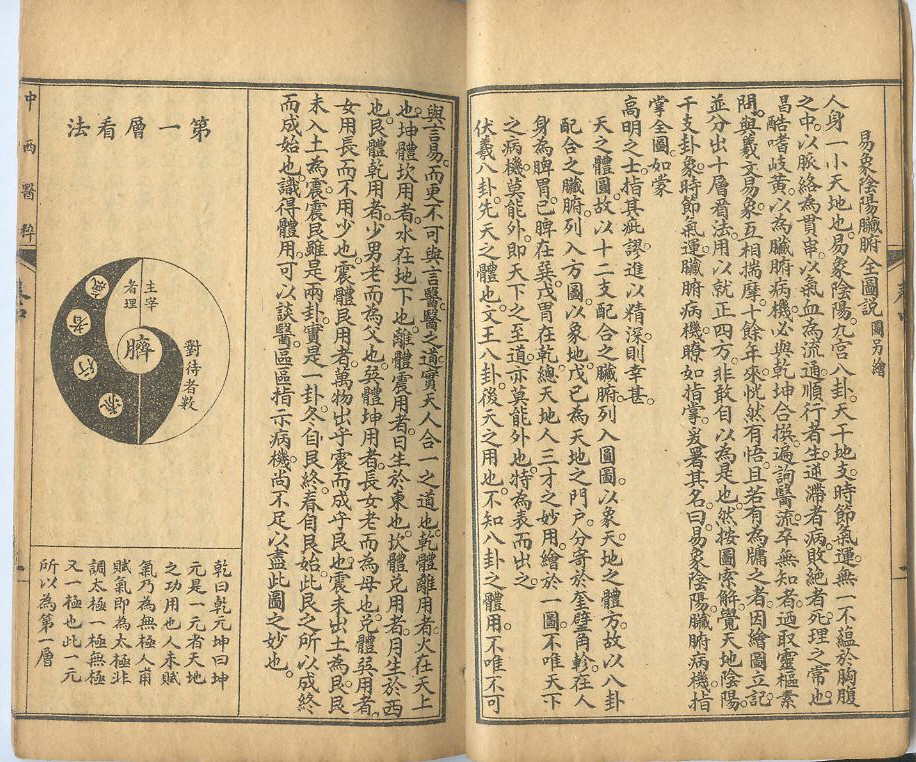 易象陰陽臟腑全圖説 圖另繪
人身一小天地也。易象陰陽。九宮八卦。天干地支。時節氣運。無一不蘊於胸腹
之中。以脈絡為貫串。以氣血為流通。順行者生。逆滯者病。敗絕者死。理之常也。
昌酷嗜岐黃。以為臟腑病機。必與乾坤合撰。遍詢醫流。卒無知者。迺取靈樞素
問。與羲文易象。互相揣摩。十餘年來。恍然有悟。且若有為牖之者。因繪圖立記
並分出十層看法。用以就正四方。非敢自以為是也。然按圖索解。覺天地陰陽。
干支卦象。時節氣運。臟腑病機。瞭如指掌。爰署其名曰。易象陰陽臟腑病機指
掌全圖。如蒙
高明之士。指其疵謬。進以精深。則幸甚。
天之體圓。故以十二支配合之臟腑列入圓圖。以象天。地之體方。故以八卦
配合之臟腑列入方圖。以象地。戊己為天地之門戶。分寄於奎壁角軫。在人
身為脾胃。己脾在巽。戊胃在乾。總天地人三才之妙用。繪於一圖。不唯天下
之病機莫能外。即天下之至道。亦莫能外也。特為表而出之。
伏羲八卦。先天之體也。文王八卦。後天之用也。不知八卦之體用。不唯不可
與言易。而更不可與言醫。醫之道。實天人合一之道也。乾體離用者。火在天上
也。坤體坎用者。水在地下也。離體震用者。日生於東也。坎體兌用者。月生於西
也。艮體乾用者。少男老而為父也。巽體坤用者。長女老而為母也。兌體巽用者。
女用長而不用少也。震體艮用者。萬物出乎震而成乎艮也。震未出土為艮。艮
未入土為震。震艮雖是兩卦。實是一卦。冬自艮終。春自艮始。此艮之所以成終
而成始也。識得體用。可以談醫。區區指示病機。尚不足以盡此圖之妙也。
第一層看法
主宰
者理
對待者數
臍
氣
者
行
流
乾曰乾元坤曰坤
元是一元者天地
之功用也人未賦
氣乃為無極人甫
賦氣即為太極非
謂太極一極無極
又一極也此一元
所以為第一層
中西醫粹